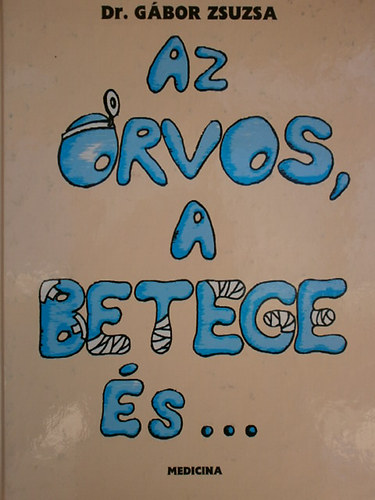 Dr. GÁBOR ZSUZSA
Az
ORVOS,
A
BETEGE
És ...
MEDICINA